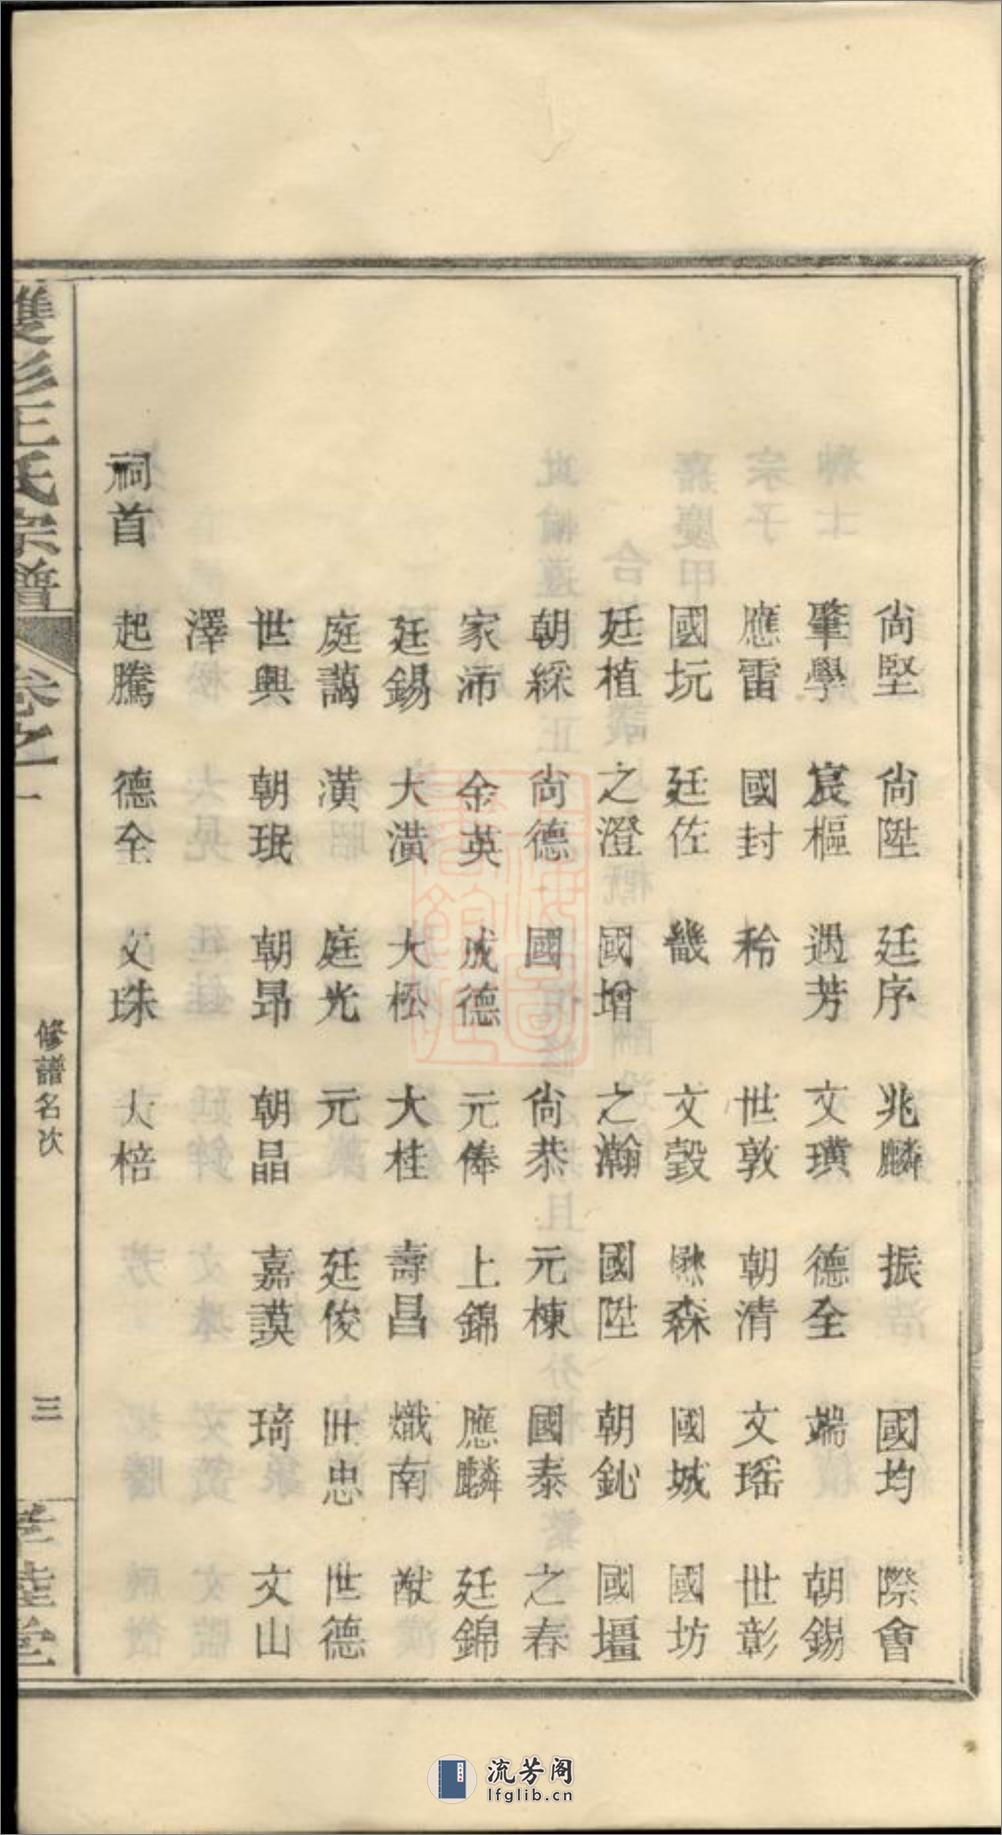 尙堅 尙陞 廷序 兆麟 振 國均 際會
肇學 宸樞 遇芳 文璜 德全 端 朝錫
應雷 國封 秢 世敦 朝清 文瑤 世彰
國玩 廷佐 畿 文瑴 懋森 國城 國坊
廷植 之澄 國增 之瀚 國陞 朝鈊 國壃
朝綵 尙德 國 尙恭 元棟 國泰 之春
家沛 金英 成德 元俸 上錦 應麟 廷錦
廷錫 大潢 大松 大桂 壽昌 熾南 猷
庭藹 潢 庭光 元 廷俊 世忠 世德
世興 朝珉 朝昂 朝晶 嘉謨 琦 文山
澤
祠首 起騰 德全 文珠 大棓
雙杉王氏宗譜 卷之一 修譜名次 三 孝睦堂
流芳阁
lfglib.cn